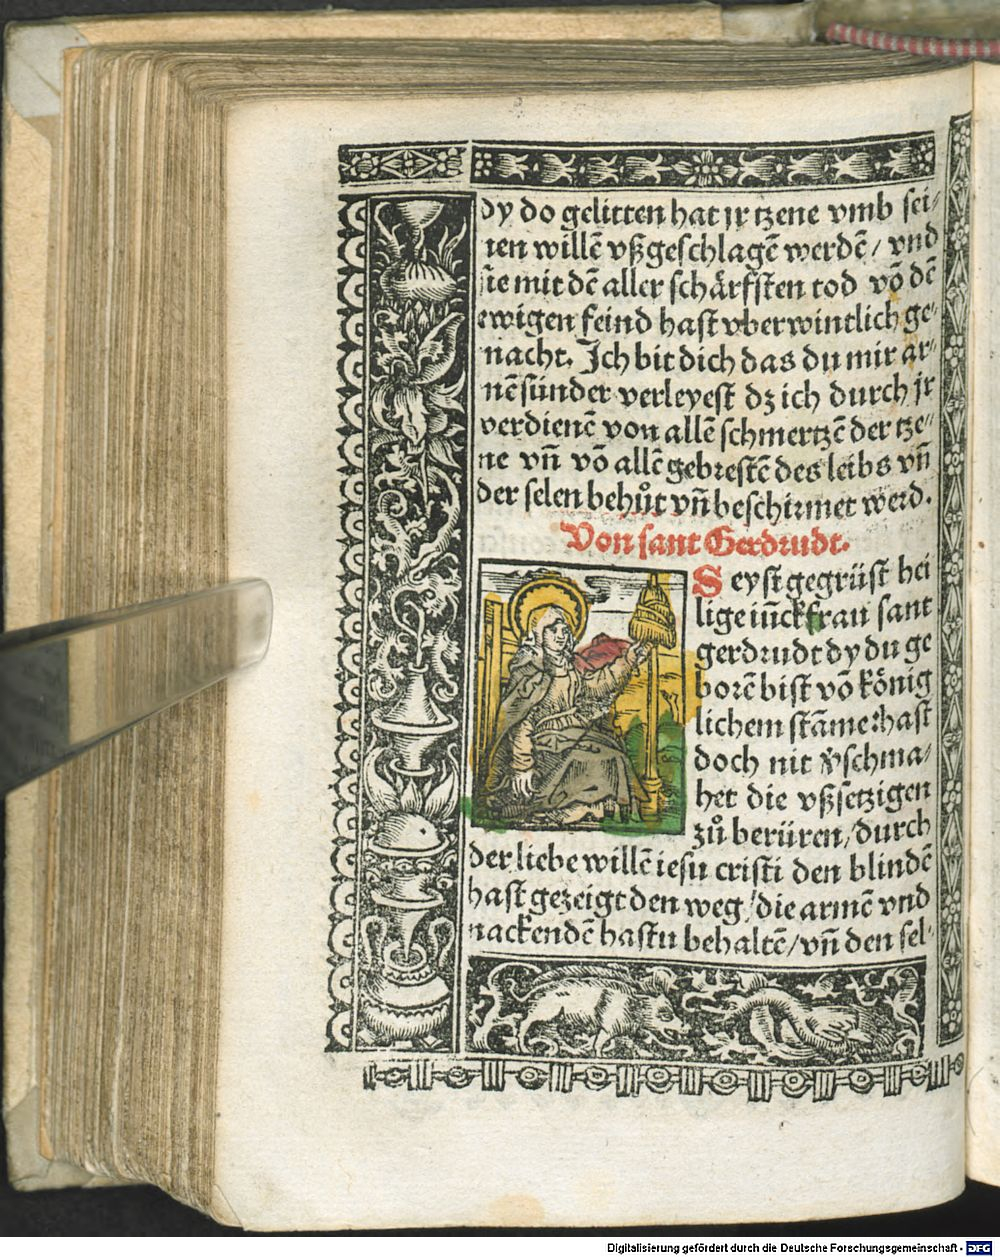 dy do gelitten hat jr tzene vmb sei/
nen willē vßgeschlagē werdē/ vnd
sie mit dē aller schärfsten tod vō dē
ewigen feind hast vberwintlich ge/
macht. Ich bit dich das du mir ar/
mē sünder verleyest dz ich durch jr
verdienē von allē schmertzē der tze/
ne vn̄ vō allē gebrestē des leibs vn̄
der selen behuͦt vn̄ beschirmet werd.
Von sant Gerdrudt.
Seyst gegrüst hei
lige iūckfrau sant
gerdrudt dy du ge
borē bist vō könig
lichem stāme: hast
doch nit v̄schma/
het die vßsetzigen
zuͦ berüren/ durch
der liebe willē iesu cristi den blindē
hast gezeigt den weg/ die armē vnd
nackendē hastu behaltē/ vn̄ den sel/
Digitalisierung gefördert durch die Deutsche Forschungsgemeinschaft - DFG